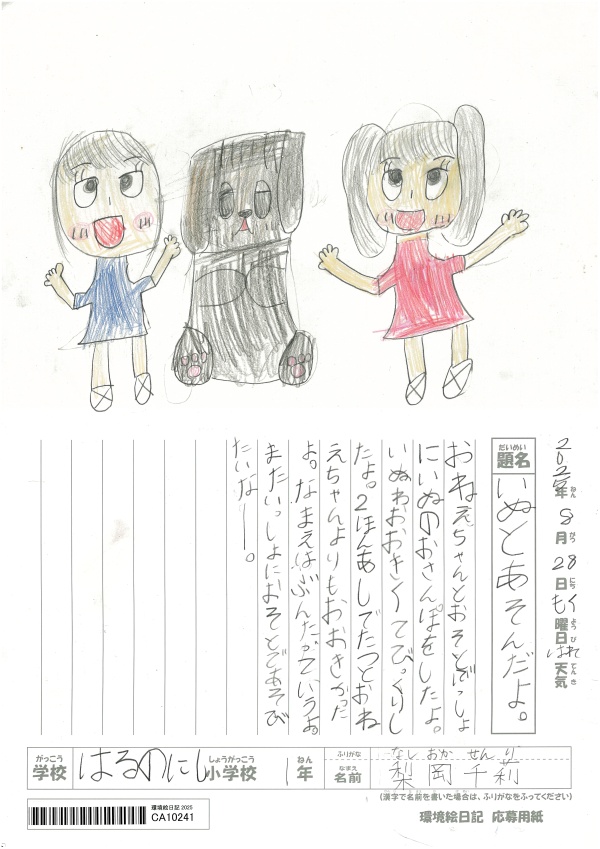 2025年ねん8月がつ28日にちもく曜日ようびはれ天気てんき
題名 だいめい
いぬとあそんだよ。
おねえちゃんとおそとでいっしょ
にいぬのおさんぽをしたよ。
いぬわおおきくてびっくりし
たよ。2ほんあしでたつとおね
えちゃんよりもおおきかった
よ。なまえはぶんたっていうよ。
またいっしょにおそとであそび
たいなー。
がっこう しょうがっこう ねん ふりがな なしおか せんり
学校 はるのにし小学校 1年 なまえ 名前 梨岡千莉
(漢字で名前を書いた場合は、ふりがなをふってください)
環境絵日記 2025
CA10241
環境絵日記 応募用紙